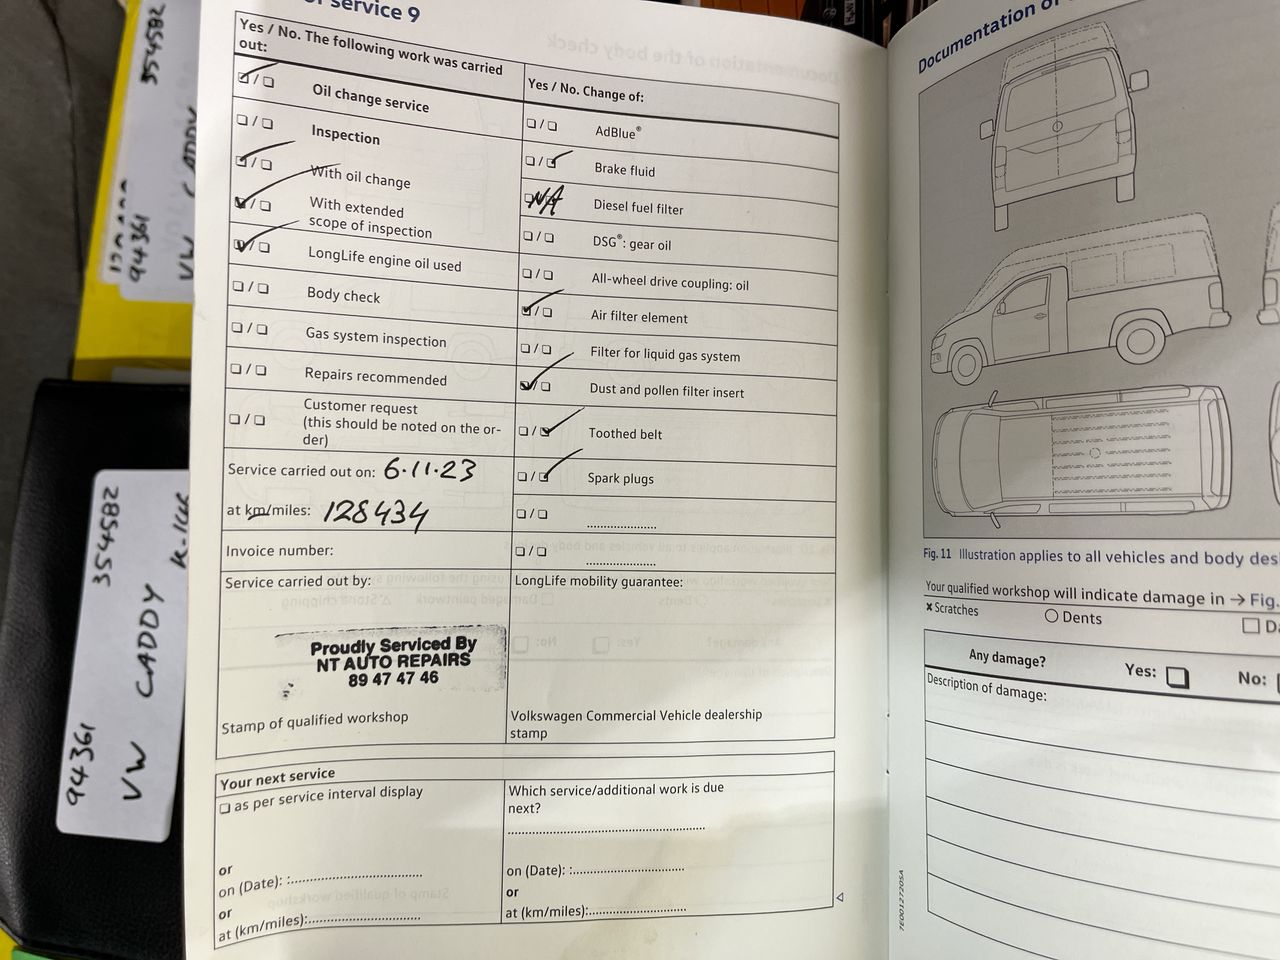 service 9
Yes / No. The following work was carried
out:
Oil change service
Inspection
With oil change
With extended
scope of inspection
LongLife engine oil used
Body check
Gas system inspection
Repairs recommended
Customer request
(this should be noted on the or-
der)
Service carried out on: 6.11.23
at km/miles: 128434
Invoice number:
Service carried out by:
Proudly Serviced By
NT AUTO REPAIRS
89 47 47 46
Stamp of qualified workshop
Yes / No. Change of:
AdBlue®
Brake fluid
N/A Diesel fuel filter
DSG®: gear oil
All-wheel drive coupling: oil
Air filter element
Filter for liquid gas system
Dust and pollen filter insert
Toothed belt
Spark plugs
LongLife mobility guarantee:
Volkswagen Commercial Vehicle dealership
stamp
Your next service
as per service interval display
or
on (Date): :
or
at (km/miles):
Which service/additional work is due
next?
on (Date): :
or
at (km/miles):
Documentation of
Fig. 11 Illustration applies to all vehicles and body des
Your qualified workshop will indicate damage in → Fig.
× Scratches
Dents
Any damage?
Yes:
No:
Description of damage:
7E0012720SA
354582
94361
VW CADDY
354582
94361
VW CADDY